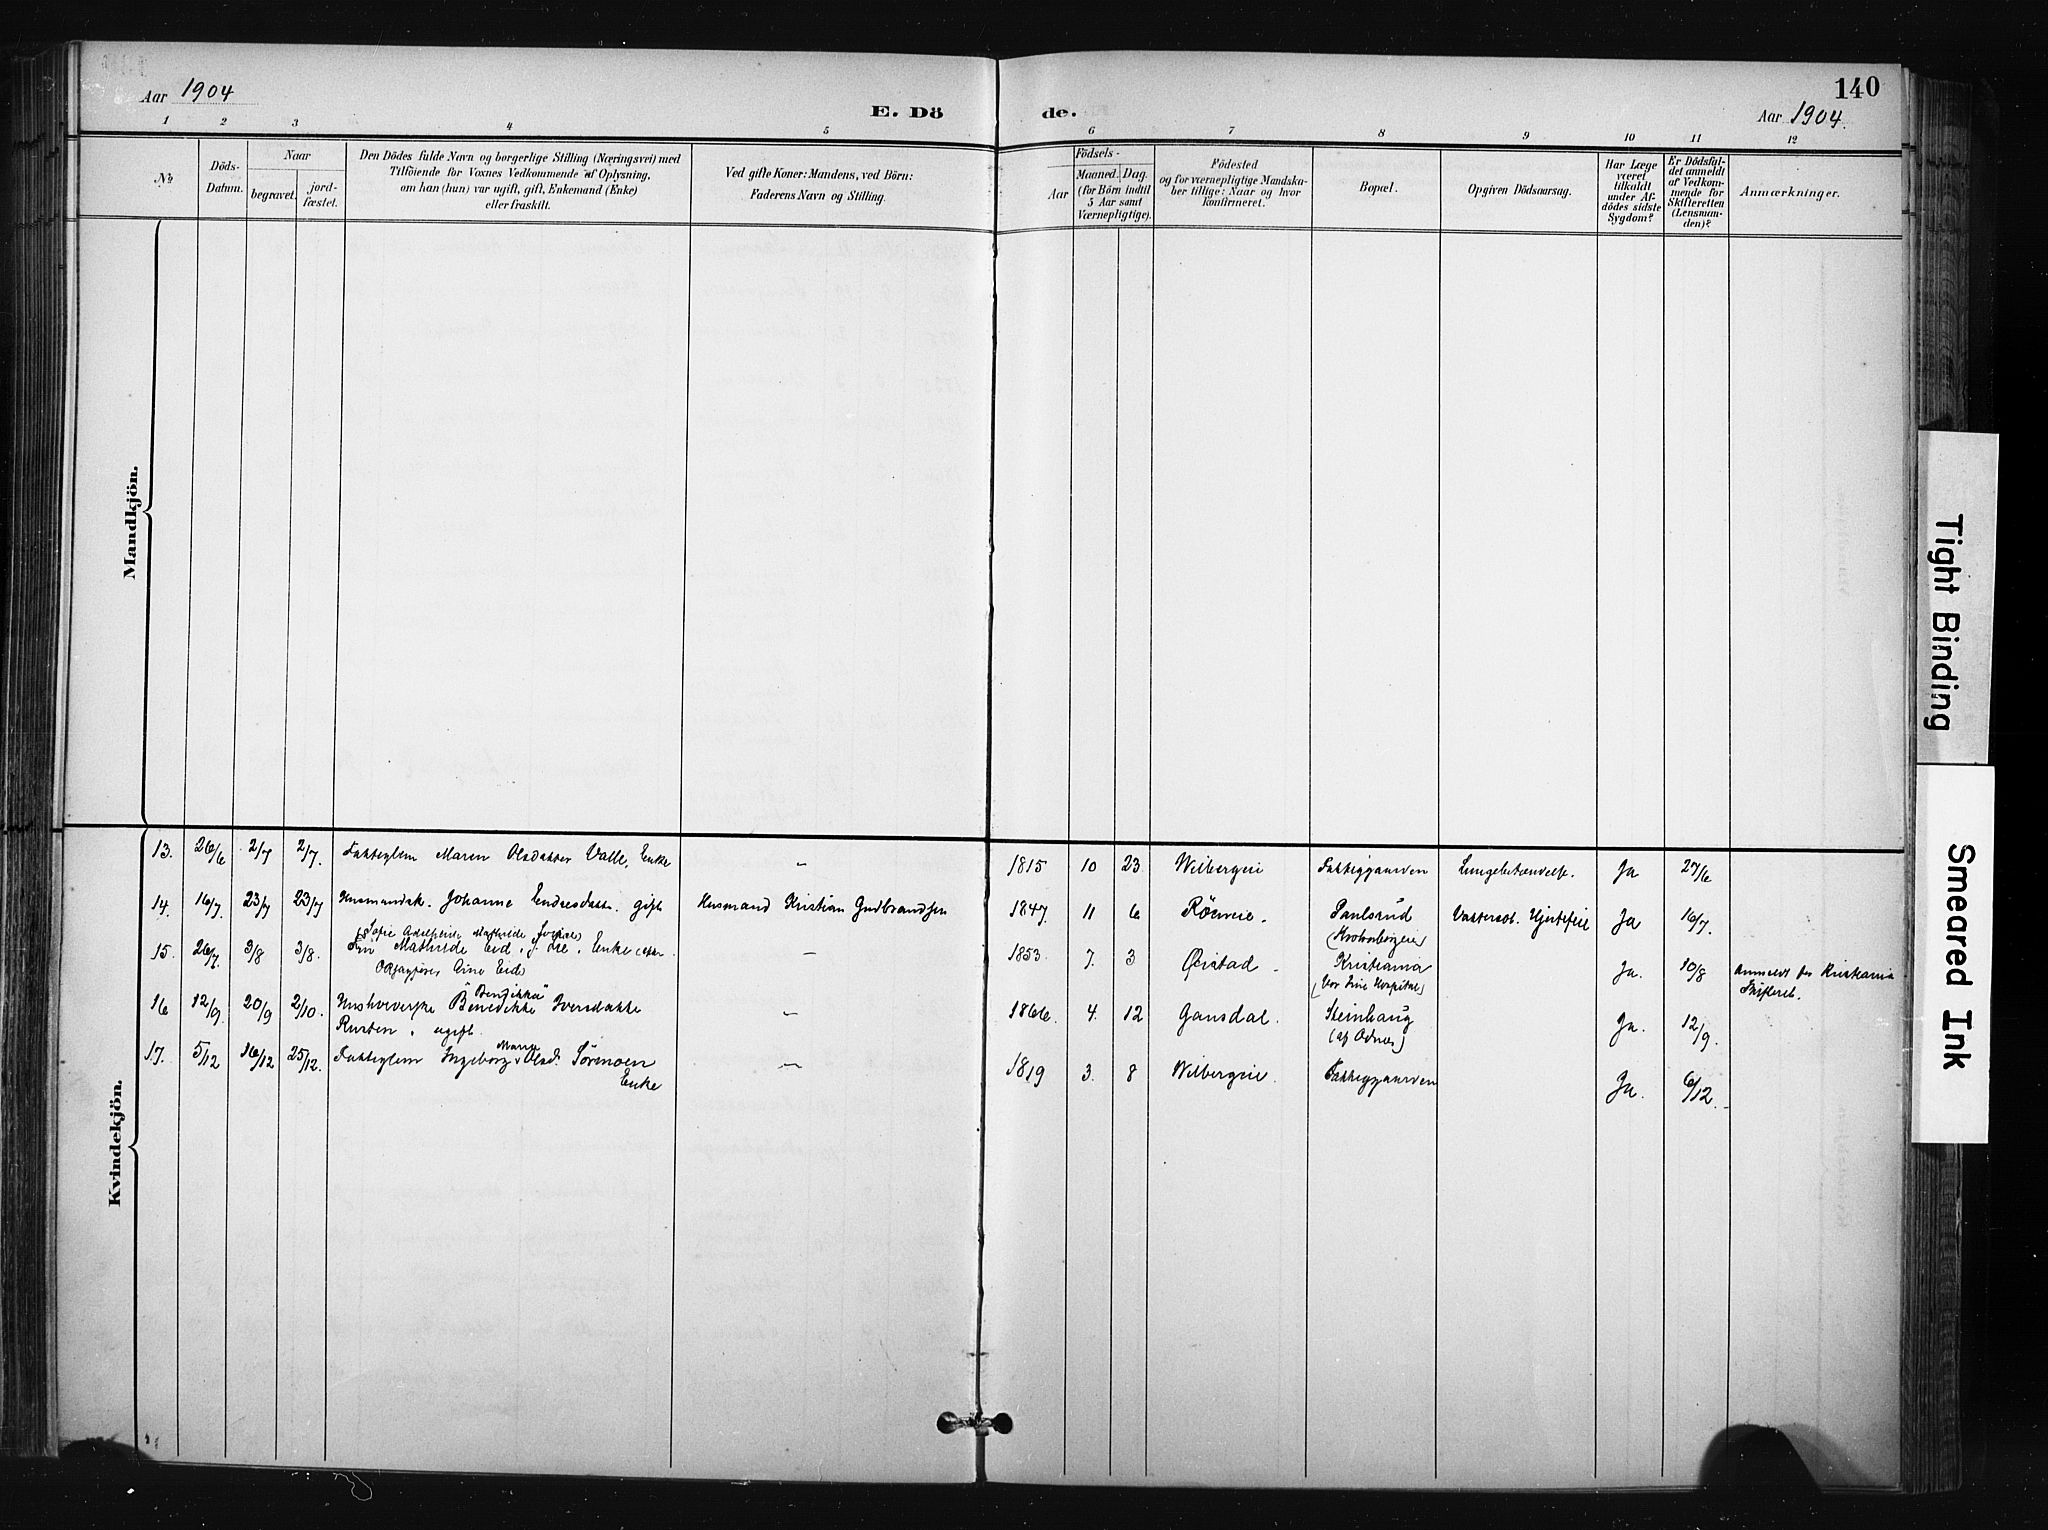 Aar 1904
E. Dö
de.
140
Aar 1904.
1 2 3 4 5 6 7 8 9 10 11 12
№
Döds-
Datum.
Naar
begravet.
jord-
fæstet.
Den Dödes fulde Navn og borgerlige Stilling (Næringsvei) med
Tilföiende för Voxnes Vedkommende af Oplysning,
om han (hun) var ugift, gift, Enkemand (Enke)
eller fraskilt.
Ved gifte Koner: Mandens, ved Börn:
Faderens Navn og Stilling.
Födsels-
Aar
Maaned. Dag.
(for Börn indtil
5 Aar samt
Værnepligtige).
Födested
og for værnepligtige Mandska-
ber tillige: Naar og hvor
konfirmeret.
Bopæl.
Opgiven Dödsaarsag.
Har Læge
været
tilkaldt
under Af-
dödes sidste
Sygdom?
Er Dödsfal-
det anmeldt
af Vedkom-
mende for
Skifteretten
(Lensman-
den)?
Anmærkninger.
Mandkjön.
Kvindekjön.
13. 26/6 2/7 2/7. Fattiglem Maren Olsdatter Valle, Enke — 1815 10 23 Wilbergeie Fattiggaarden Lungebetændelse. Ja 27/6
14. 16/7. 23/7 23/7 Husmandsk. Johanne Endresdatter gift Husmand Kristian Gudbrandsen 1847. 11 6 Röeneie. Paulsrud Vattersot. Hjertefeil Ja 16/7.
(Krohnborgeie)
(Sofie Adelheide Mathilde Lovise)
15. 26/7. 3/8 3/8. Fru Mathilde Eid, Enke — 1853 7. 3 Ørstad Kristiania Ja. 10/8 Anmeldt for Kristiania
Arne Eid) (Vor Frue Hospital) Skifteret.
"Bendikka"
16 12/9. 20/9 2/10. Benedikke Iversdatter — 1866. 4. 12 Gansdal. Steinhaug Ja. 12/9.
Rusten, ugift. (af Odnes)
Marie
17. 5/12 16/12 25/12. Fattiglem Ingeborg Olsd. Sörenoen — 1819 3. 8 Wilbergeie. Fattiggaarden Ja. 6/12.
Enke
Tight Binding
Smeared Ink